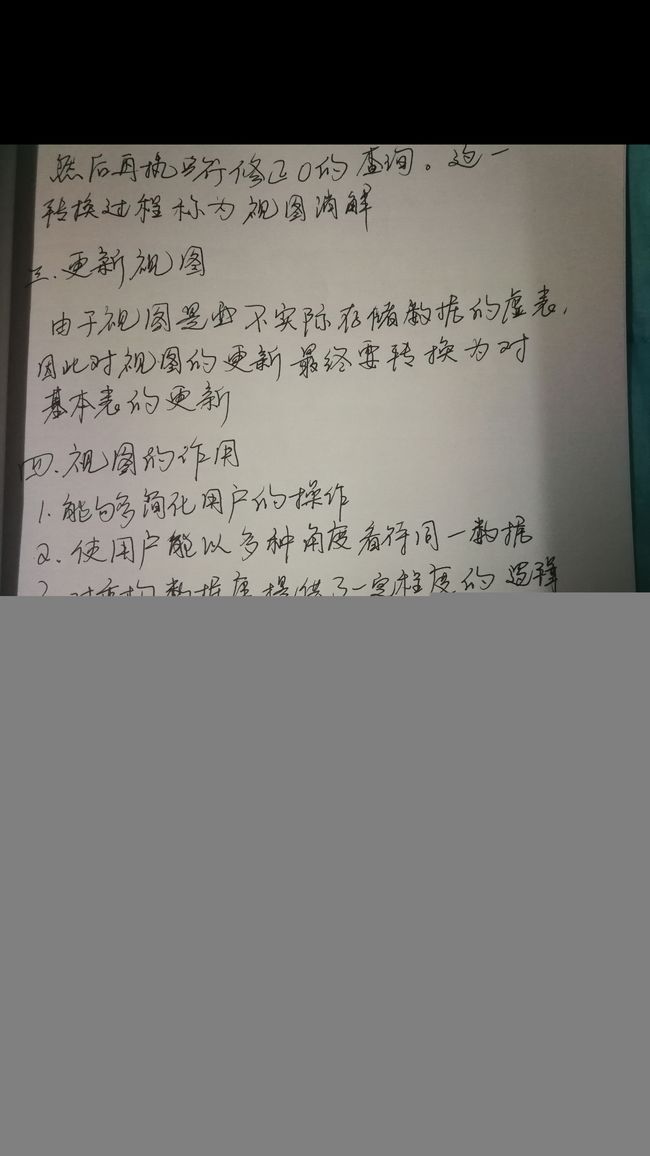 然后再执行修正的查询。这一
转换过程称为视图消解
三.更新视图
由于视图是不实际存储数据的虚表,
因此对视图的更新最终要转换为对
基本表的更新
四.视图的作用
1.能够简化用户的操作
2.使用户能以多种角度看待同一数据
数据库提供了一定程度的逻辑